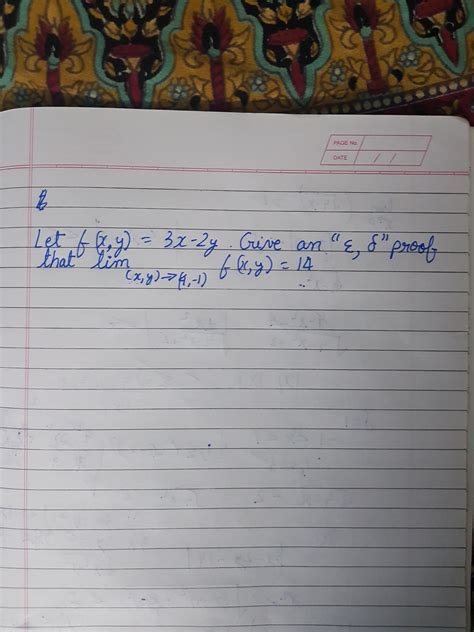 PAGE No.
DATE / /
Let f(x,y) = 3x-2y. Give an "ε, δ" proof
that lim f(x,y) = 14
(x,y)→(4,-1)